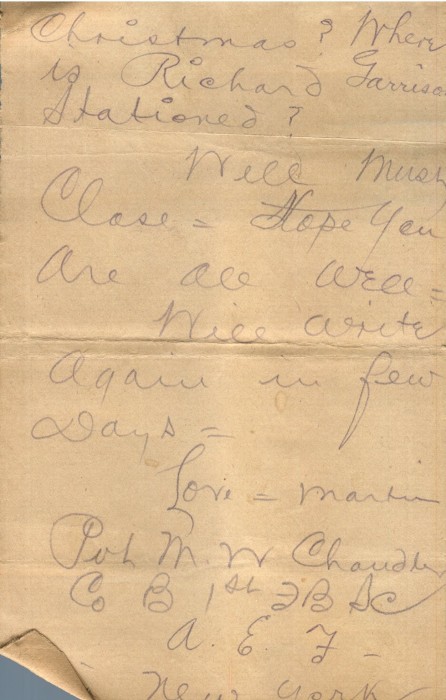 Christmas? Where
is Richard Garrison
Stationed?
Well Must
Close = Hope You
Are all well =
Will write
Again in few
Days =
Love = Martin
Pvt M. W Chandler
Co B 1st FB SC
A. E. F -
- New York